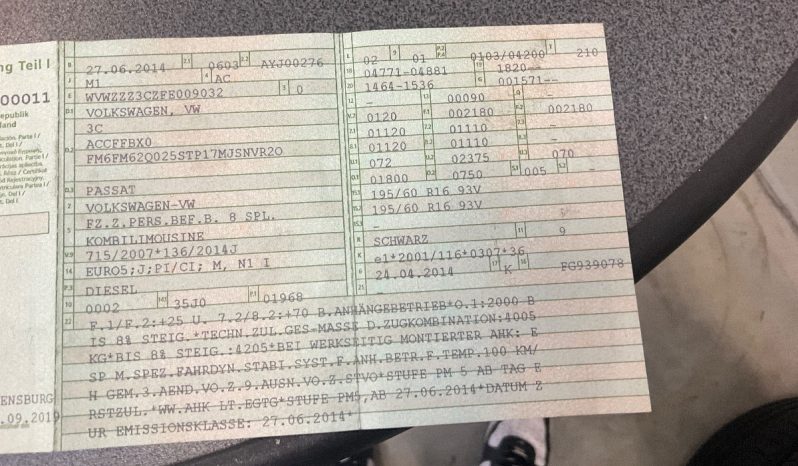 ng Teil I
00011
epublik
land
ENSBURG
.09.2019
B 27.06.2014 2.1 0603 2.2 AYJ00276
J M1 4 AC
E WVWZZZ3CZFE009032 3 0
D.1 VOLKSWAGEN, VW
3C
D.2 ACCFFBX0
FM6FM62Q025STP17MJSNVR2O
D.3 PASSAT
2 VOLKSWAGEN-VW
5 FZ.Z.PERS.BEF.B. 8 SPL.
KOMBILIMOUSINE
V.9 715/2007*136/2014J
14 EURO5;J;PI/CI; M, N1 I
P.3 DIESEL
10 0002 14.1 35J0 P.1 01968
L 02 9 01 P.2 P.4 0103/04200 T 210
18 04771-04881 19 1820--
20 1464-1536 G 001571--
12 - 13 00090 Q -
V.7 0120 F.1 002180 F.2 002180
7.1 01120 7.2 01110 7.3 -
8.1 01120 8.2 01110 8.3 -
U.1 072 U.2 02375 U.3 070
O.1 01800 O.2 0750 S.1 005 S.2 -
15.1 195/60 R16 93V
15.2 195/60 R16 93V
15.3 -
R SCHWARZ 11 9
K e1*2001/116*0307*36
6 24.04.2014 17 K 16 FG939078
21
22 F.1/F.2:+25 U. 7.2/8.2:+70 B.ANHÄNGEBETRIEB*O.1:2000 B
IS 8% STEIG.*TECHN.ZUL.GES-MASSE D.ZUGKOMBINATION:4005
KG*BIS 8% STEIG.:4205*BEI WERKSEITIG MONTIERTER AHK: E
SP M.SPEZ.FAHRDYN.STABI.SYST.F.ANH.BETR.F.TEMP.100 KM/
H GEM.3.AEND.VO.Z.9.AUSN.VO.Z.STVO*STUFE PM 5 AB TAG E
RSTZUL.*WW.AHK LT.EGTG*STUFE PM5,AB 27.06.2014*DATUM Z
UR EMISSIONSKLASSE: 27.06.2014*